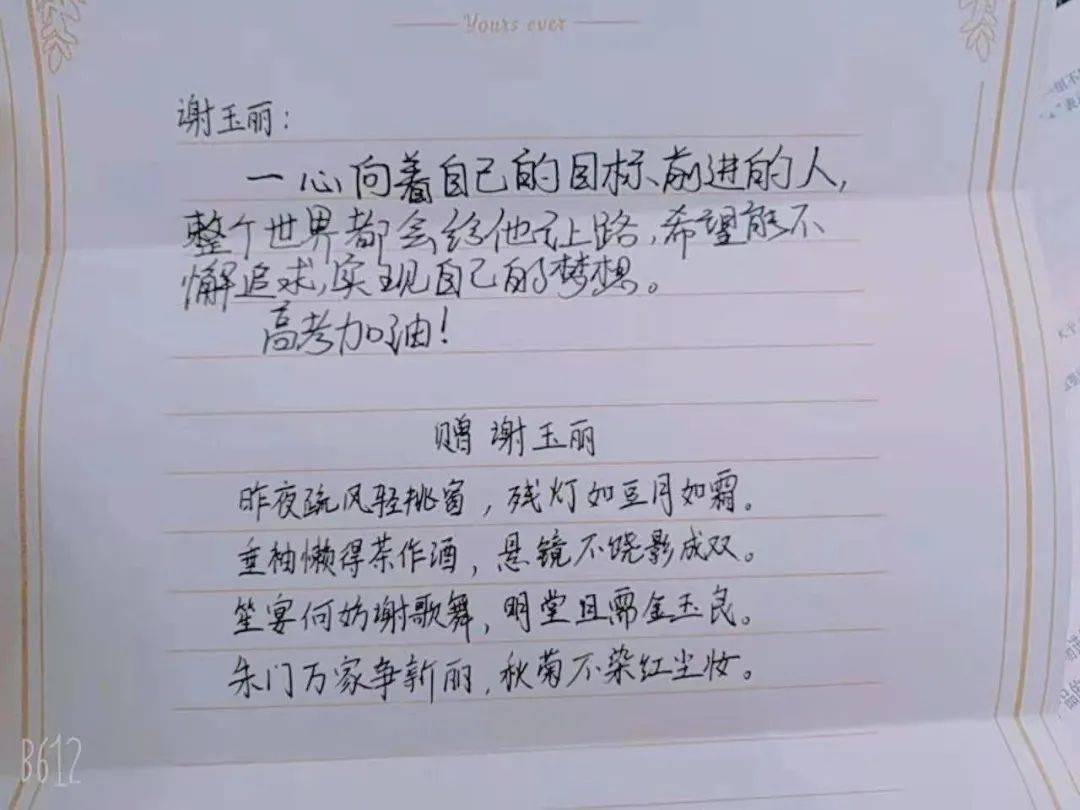 Yours ever
谢玉丽：
一心向着自己的目标前进的人，
整个世界都会给他让路，希望能不
懈追求，实现自己的梦想。
高考加油！
赠谢玉丽
昨夜疏风轻挑窗，残灯如豆月如霜。
垂袖懒得茶作酒，悬镜不饶影成双。
笙宴何妨谢歌舞，明堂且需金玉良。
朱门万家争新丽，秋菊不染红尘妆。
B612